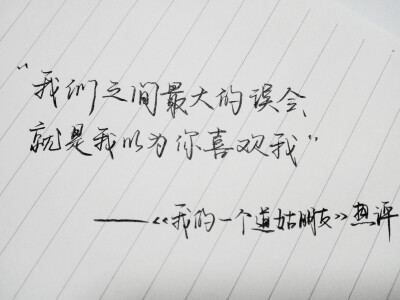 "我们之间最大的误会、
就是我以为你喜欢我"
——《我的一个道姑朋友》热评